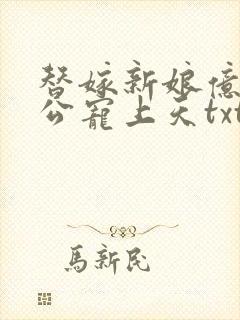 替嫁新娘億
公寵上天txt
馬新民